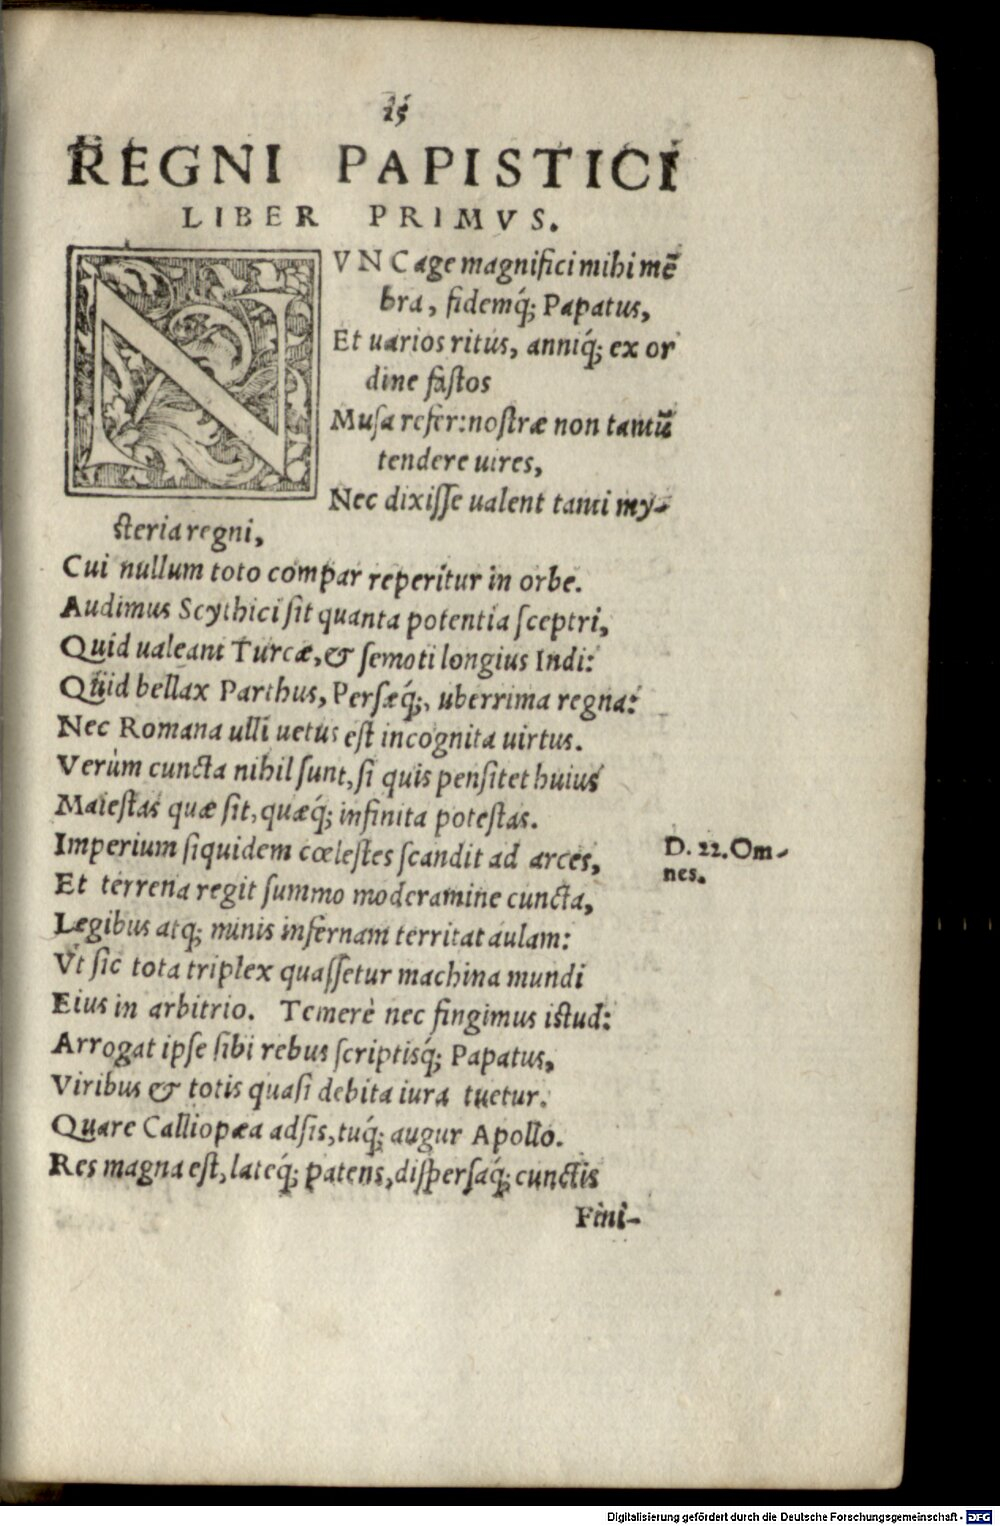 15
REGNI PAPISTICI
LIBER PRIMVS.
NVNC age magnifici mihi mẽ
bra, fidemq́; Papatus,
Et uarios ritus, anniq́; ex or
dine fastos
Musa refer: nostræ non tantũ
tendere uires,
Nec dixisse ualent tanti my-
steria regni,
Cui nullum toto compar reperitur in orbe.
Audimus Scythici sit quanta potentia sceptri,
Quid ualeant Turcæ, & semoti longius Indi:
Quid bellax Parthus, Persæq́;, uberrima regna:
Nec Romana ulli uetus est incognita uirtus.
Verùm cuncta nihil sunt, si quis pensitet huius
Maiestas quæ sit, quæq́; infinita potestas.
Imperium siquidem cœlestes scandit ad arces,
D. 22. Om-
nes.
Et terrena regit summo moderamine cuncta,
Legibus atq; minis infernam territat aulam:
Vt sic tota triplex quassetur machina mundi
Eius in arbitrio. Temerè nec fingimus istud:
Arrogat ipse sibi rebus scriptisq́; Papatus,
Viribus & totis quasi debita iura tuetur.
Quare Calliopæa adsis, tuq́; augur Apollo.
Res magna est, lateq́; patens, dispersaq́; cunctis
Fini-
Digitalisierung gefördert durch die Deutsche Forschungsgemeinschaft - DFG